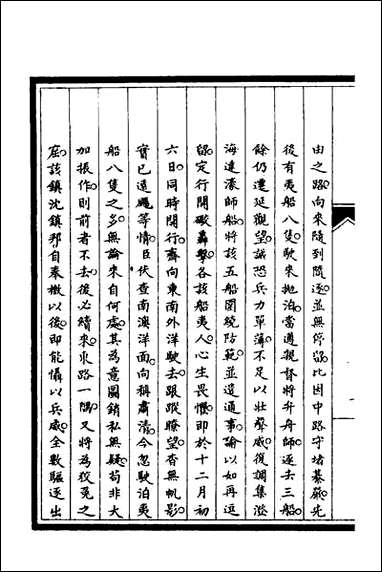 由之路向來隨到隨逐並無停留比因中路守堵綦嚴先
後有夷船八隻駛來拋泊當遵親督將弁舟師逐去三船
餘仍遷延觀望誠恐兵力單薄不足以壯聲威復調集澄
海達濠師船將該五船圍繞防範並遣通事諭以如再逗
留定行開礮轟擊各該船夷人心生畏懼即於十二月初
六日同時開行齊向東南外洋駛去跟蹤瞭望杳無帆影
實已遠颺等情臣伏查南澳洋面向稱肅清今忽駛泊夷
船八隻之多無論來自何處其為意圖銷私無疑苟非大
加振作則前者不去後必續來氷路一隅又將為狡兔之
窟該鎮沈鎮邦自奉檄以後即能懾以兵威全數驅逐出